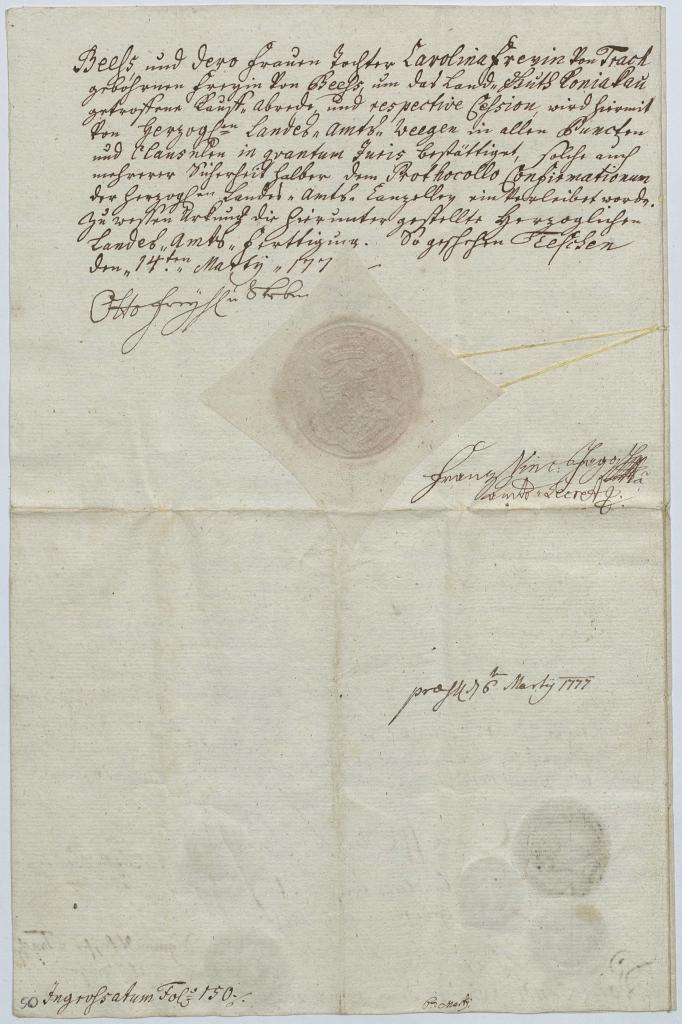 Beess, und dero Frauen Tochter Carolina Freyin von Trach
gebohrnen Freyin von Beess, um das Land-Guth Koniakau
getroffene Kauff-Abrede, und respective Cession, wird hiermit
von Herzoglen Landes-Ambts-Weegen in allen Puncten
und Clausulen in quantum Juris bestättiget, solche auch
mehrerer Sicherheit halber dem Prothocollo Confirmationum
der Herzoglen Landes-Ambts-Canzelley einverleibet worden.
Zu wessen Urkund die hierunter gestellte Herzoglichen
Landes-Ambts-Ferttigung. So geschehen Teschen
den 14ten Martÿ 177
Otto Freyh
Franz Vinc:
Ambts-Secret
6 Martÿ 1777
Ingrossatum Fol: 150
50
Martÿ